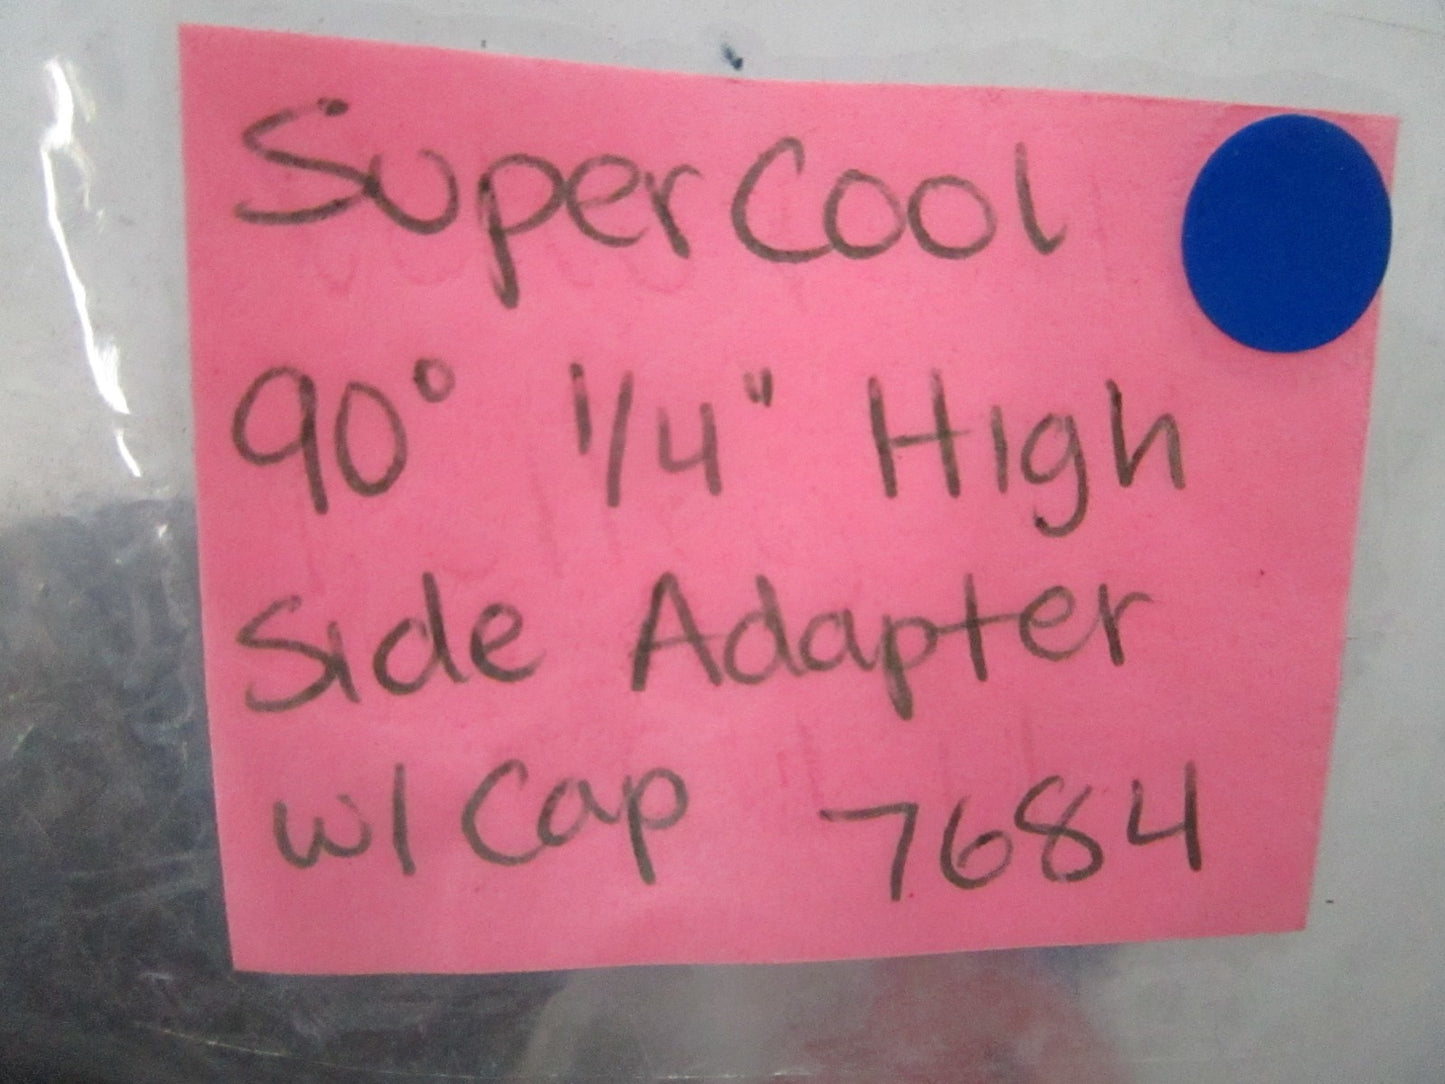 SuperCool
90° 1/4" High
Side Adapter
w/ Cap 7684